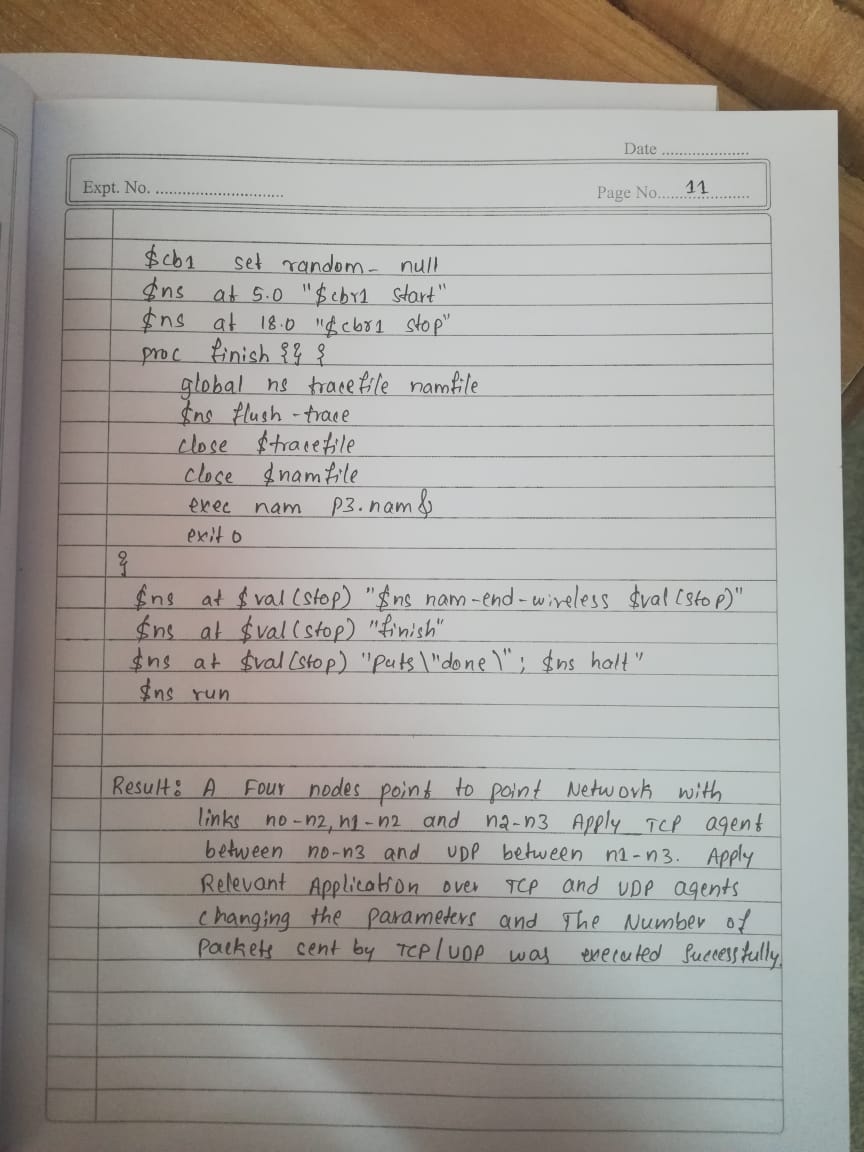 Date ....................
Expt. No. .............................
Page No.....11..........
$cb1 set random- null
$ns at 5.0 "$cbr1 start"
$ns at 18.0 "$cbr1 stop"
proc finish {} {
global ns tracefile namfile
$ns flush-trace
close $tracefile
close $namfile
exec nam p3.nam&
exit 0
}
$ns at $val(stop) "$ns nam-end-wireless $val(stop)"
$ns at $val(stop) "finish"
$ns at $val(stop) "puts\"done\"; $ns halt"
$ns run
Result: A Four nodes point to point Network with
links no-n2, n1-n2 and n2-n3 Apply TCP agent
between no-n3 and UDP between n1-n3. Apply
Relevant Application over TCP and UDP agents
changing the parameters and The Number of
Packets cent by TCP/UDP was executed Successfully.